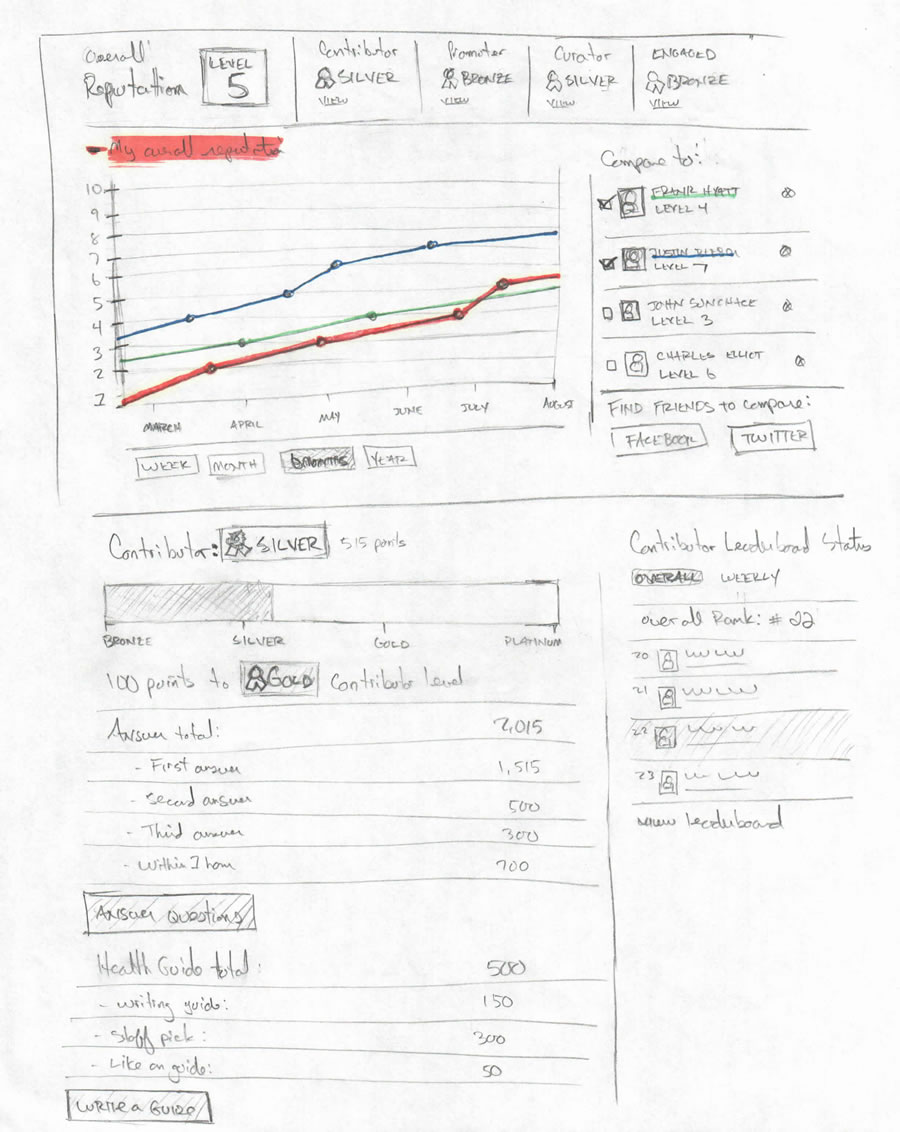 Overall Reputation
LEVEL 5
Contributor
SILVER
VIEW
Promoter
BRONZE
VIEW
Curator
SILVER
VIEW
ENGAGED
BRONZE
VIEW
My overall reputation
10
9
8
7
6
5
4
3
2
1
MARCH
APRIL
MAY
JUNE
JULY
AUGUST
WEEK
MONTH
6 MONTHS
YEAR
Compare to:
FRANK HYATT
LEVEL 4
JUSTIN
LEVEL 7
JOHN
LEVEL 3
CHARLES ELLIOT
LEVEL 6
FIND FRIENDS to compare:
FACEBOOK
TWITTER
Contributor: SILVER 515 points
BRONZE
SILVER
GOLD
PLATINUM
100 points to GOLD Contributor level
Answer total: 2,015
- First answer 1,515
- Second answer 500
- Third answer 300
- Within 1 hour 700
ANSWER QUESTIONS
Health Guide total: 500
- writing guide: 150
- Staff pick: 300
- Like on guide: 50
WRITE a GUIDE
Contributor Leaderboard Status
OVERALL WEEKLY
overall Rank: # 22
20
21
22
23
view leaderboard